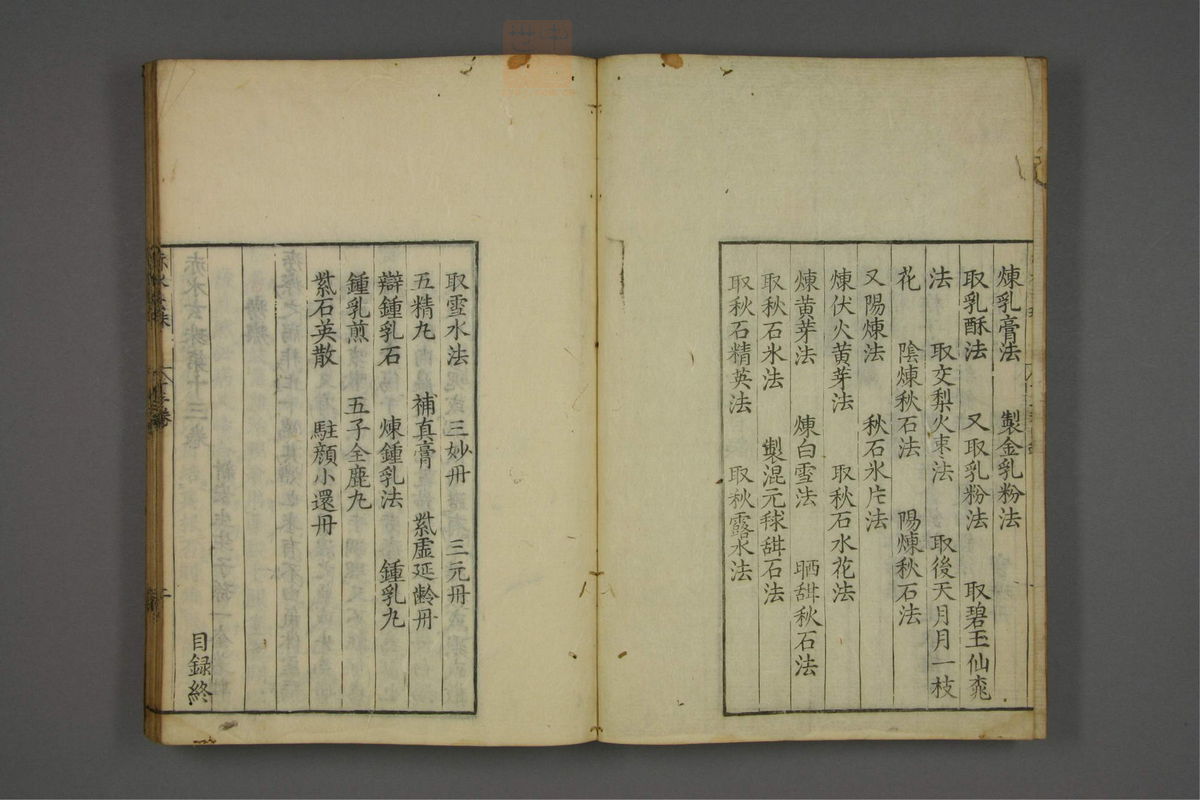 煉乳膏法 製金乳粉法
取乳酥法 又取乳粉法 取碧玉仙桃
法 取交梨火束法 取後天月月一枝
花 陰煉秋石法 陽煉秋石法
又陽煉法 秋石氷片法
煉伏火黄芽法 取秋石水花法
煉黄芽法 煉白雪法 晒甜秋石法
取秋石氷法 製混元毬甜石法
取秋石精英法 取秋露水法
取雪水法 三妙丹 三元丹
五精丸 補真膏 紫虛延齡丹
辯鍾乳石 煉鍾乳法 鍾乳丸
鍾乳煎 五子全鹿丸
紫石英散 駐顔小還丹
目録終